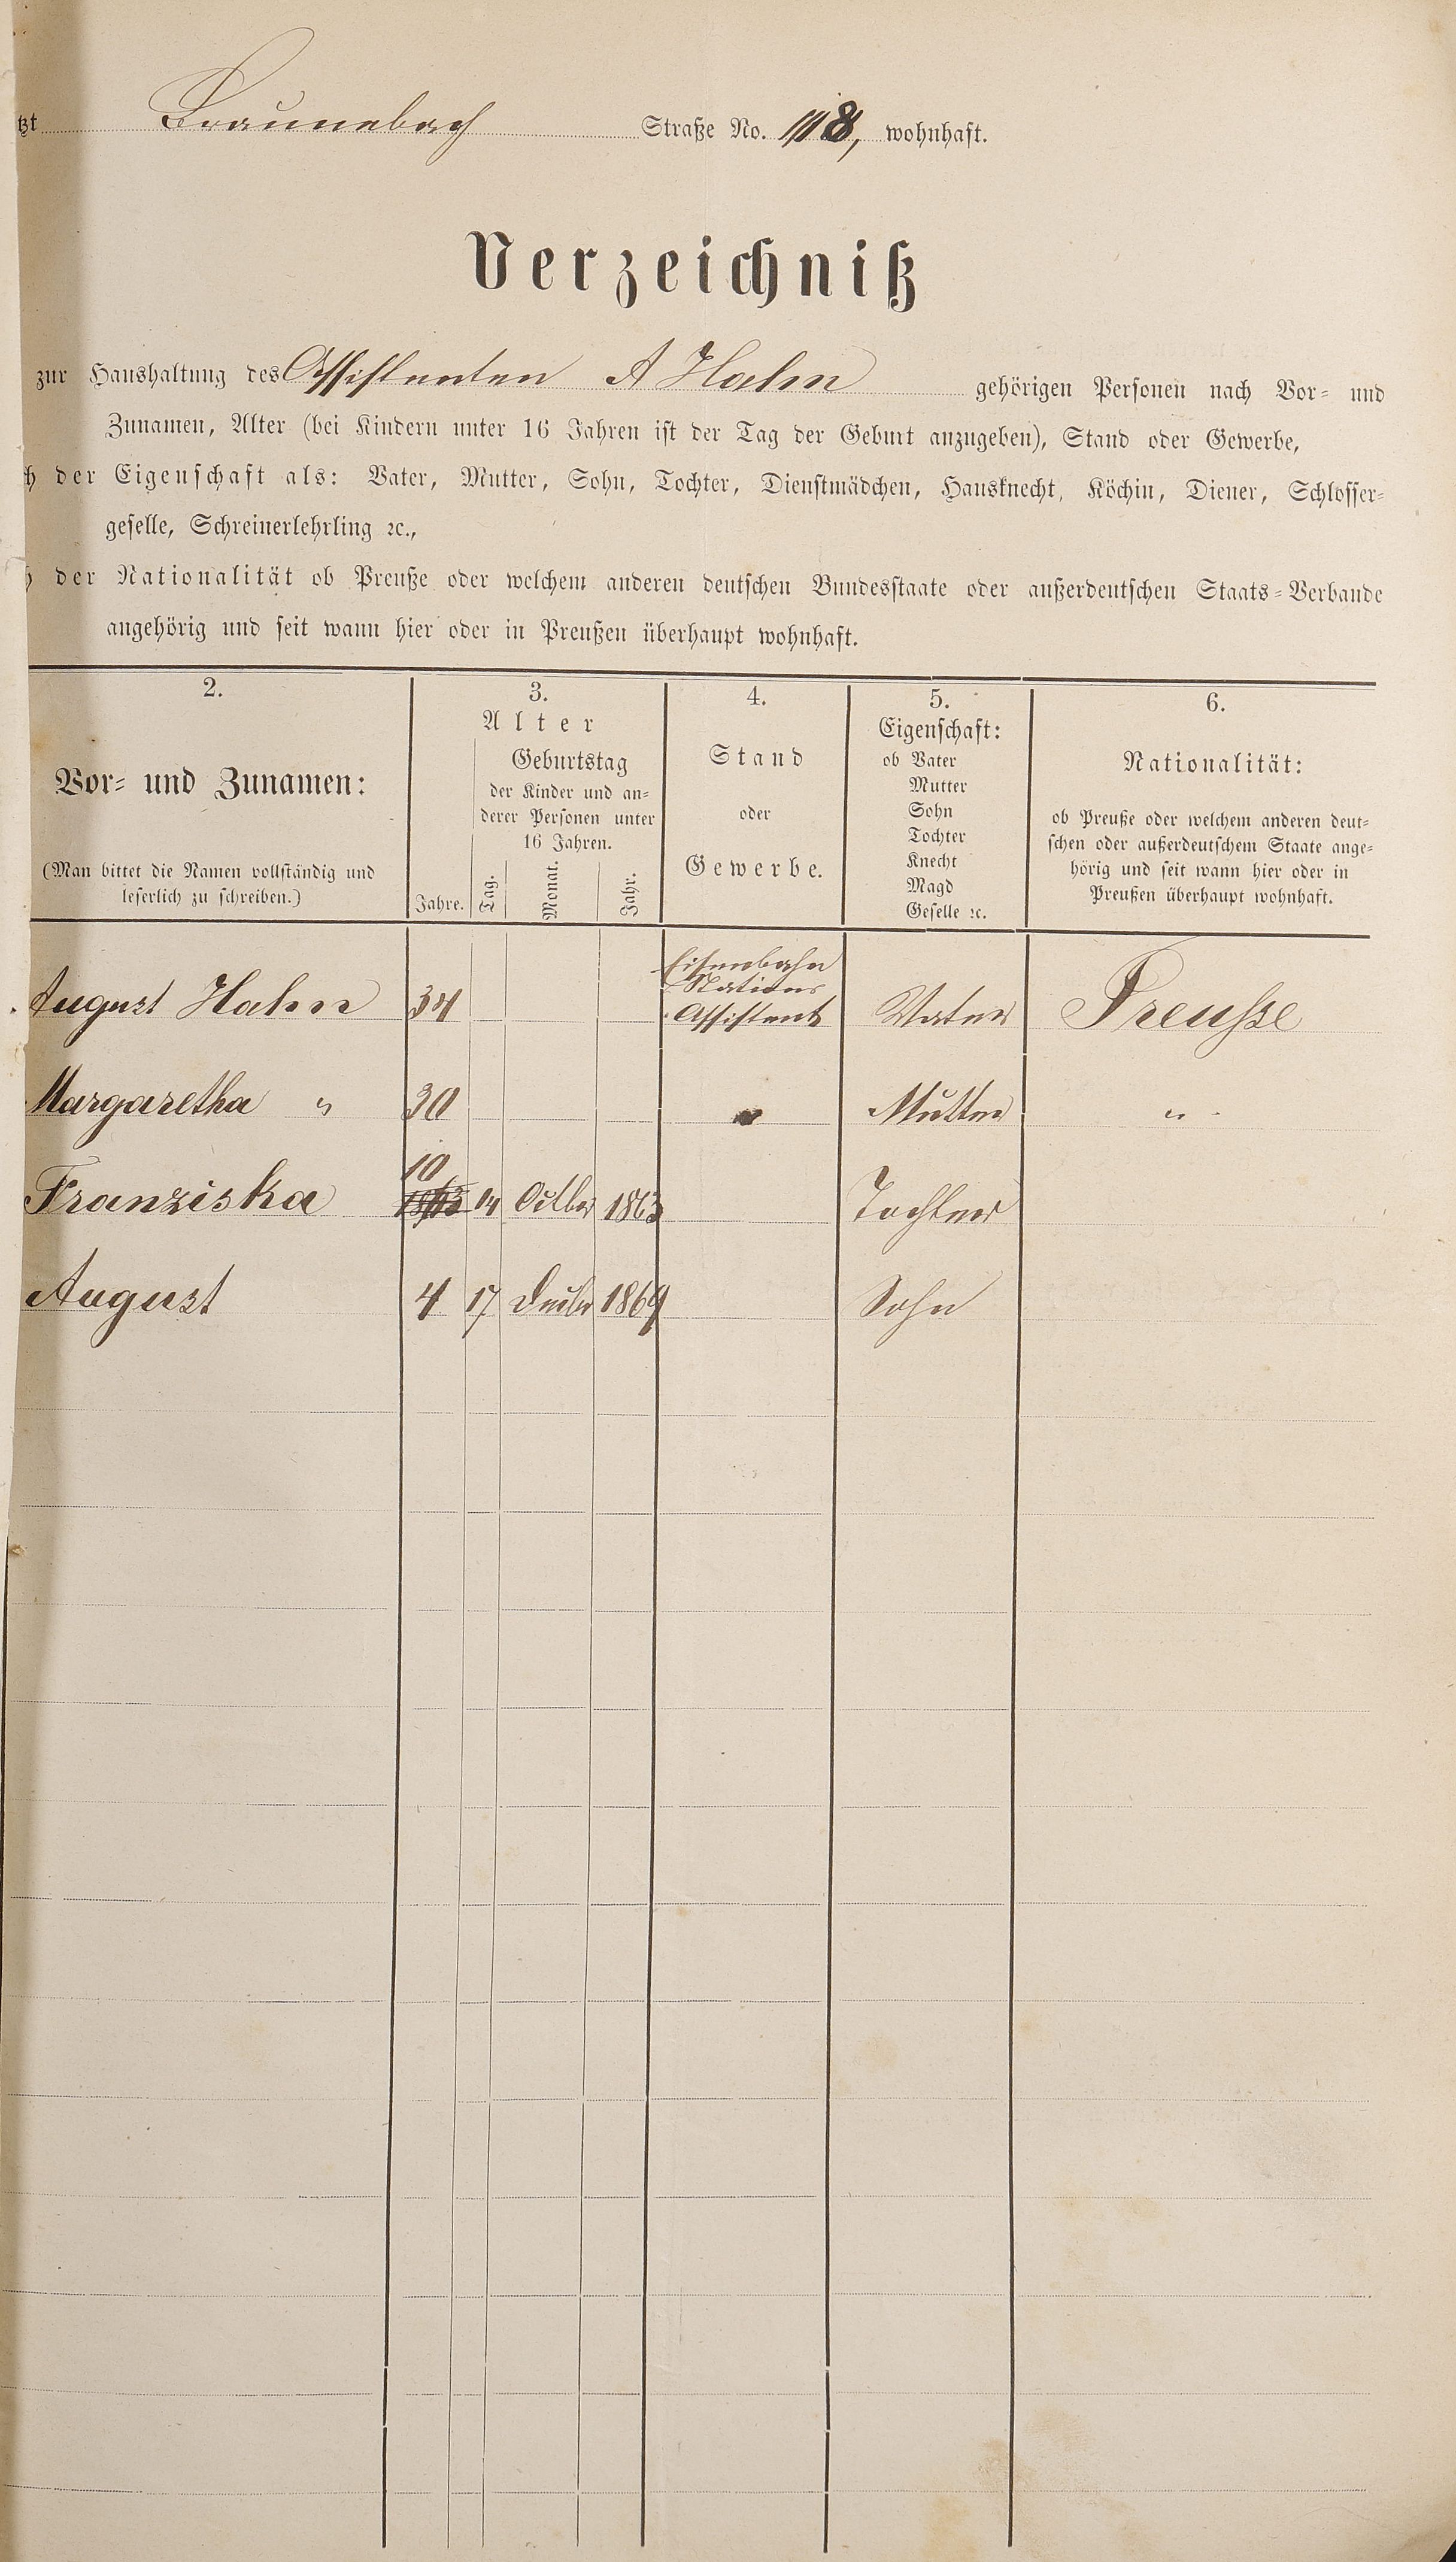 tzt Braunebach Straße No. 118, wohnhaft.
Verzeichniß
zur Haushaltung des Assistenten A Hahn gehörigen Personen nach Vor- und
Zunamen, Alter (bei Kindern unter 16 Jahren ist der Tag der Geburt anzugeben), Stand oder Gewerbe,
h der Eigenschaft als: Vater, Mutter, Sohn, Tochter, Dienstmädchen, Hausknecht, Köchin, Diener, Schlosser-
geselle, Schreinerlehrling ꝛc.,
h der Nationalität ob Preuße oder welchem anderen deutschen Bundesstaate oder außerdeutschen Staats-Verbande
angehörig und seit wann hier oder in Preußen überhaupt wohnhaft.
2.
Vor- und Zunamen:
(Man bittet die Namen vollständig und
leserlich zu schreiben.)
3.
Alter
Geburtstag
der Kinder und an-
derer Personen unter
16 Jahren.
Jahre. Tag. Monat. Jahr.
4.
Stand
oder
Gewerbe.
5.
Eigenschaft:
ob Vater
Mutter
Sohn
Tochter
Knecht
Magd
Geselle ꝛc.
6.
Nationalität:
ob Preuße oder welchem anderen deut-
schen oder außerdeutschem Staate ange-
hörig und seit wann hier oder in
Preußen überhaupt wohnhaft.
Eisenbahn
Stations
August Hahn 34 Assistent Vater Preusse
Margaretha " 30 Mutter "
10
Franziska 14 Octbr 1863 Tochter
August 4 17 Decbr 1869 Sohn